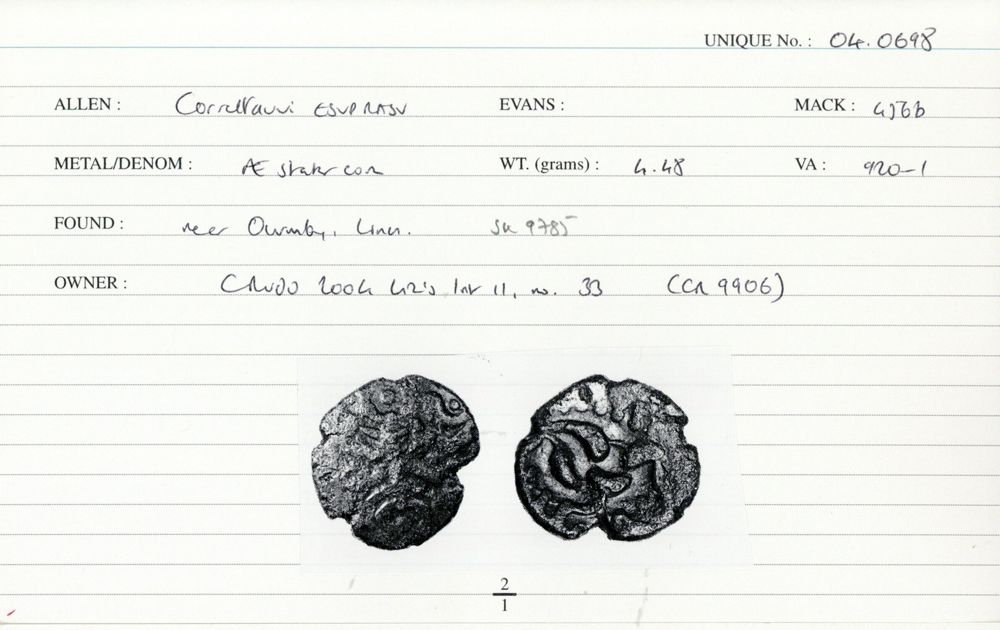 UNIQUE No. : 04.0698
ALLEN : Corieltauvi ESVPRASV EVANS : MACK : 456b
METAL/DENOM : Æ stater core WT. (grams) : 4.48 VA : 920-1
FOUND : near Owmby, Lincs. SK 9785
OWNER : 2004 list 11, no. 33 (CR 9906)
2
1